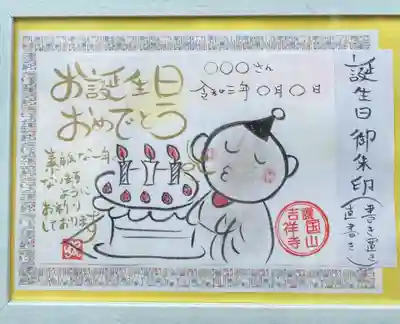 お誕生日
おめでとう
○○○さん
令和三年 ○月○日
素敵な一年に
なります
ように
お祈り
しております
護国山
吉祥寺
誕生日御朱印
(書き置き)
(直書き)